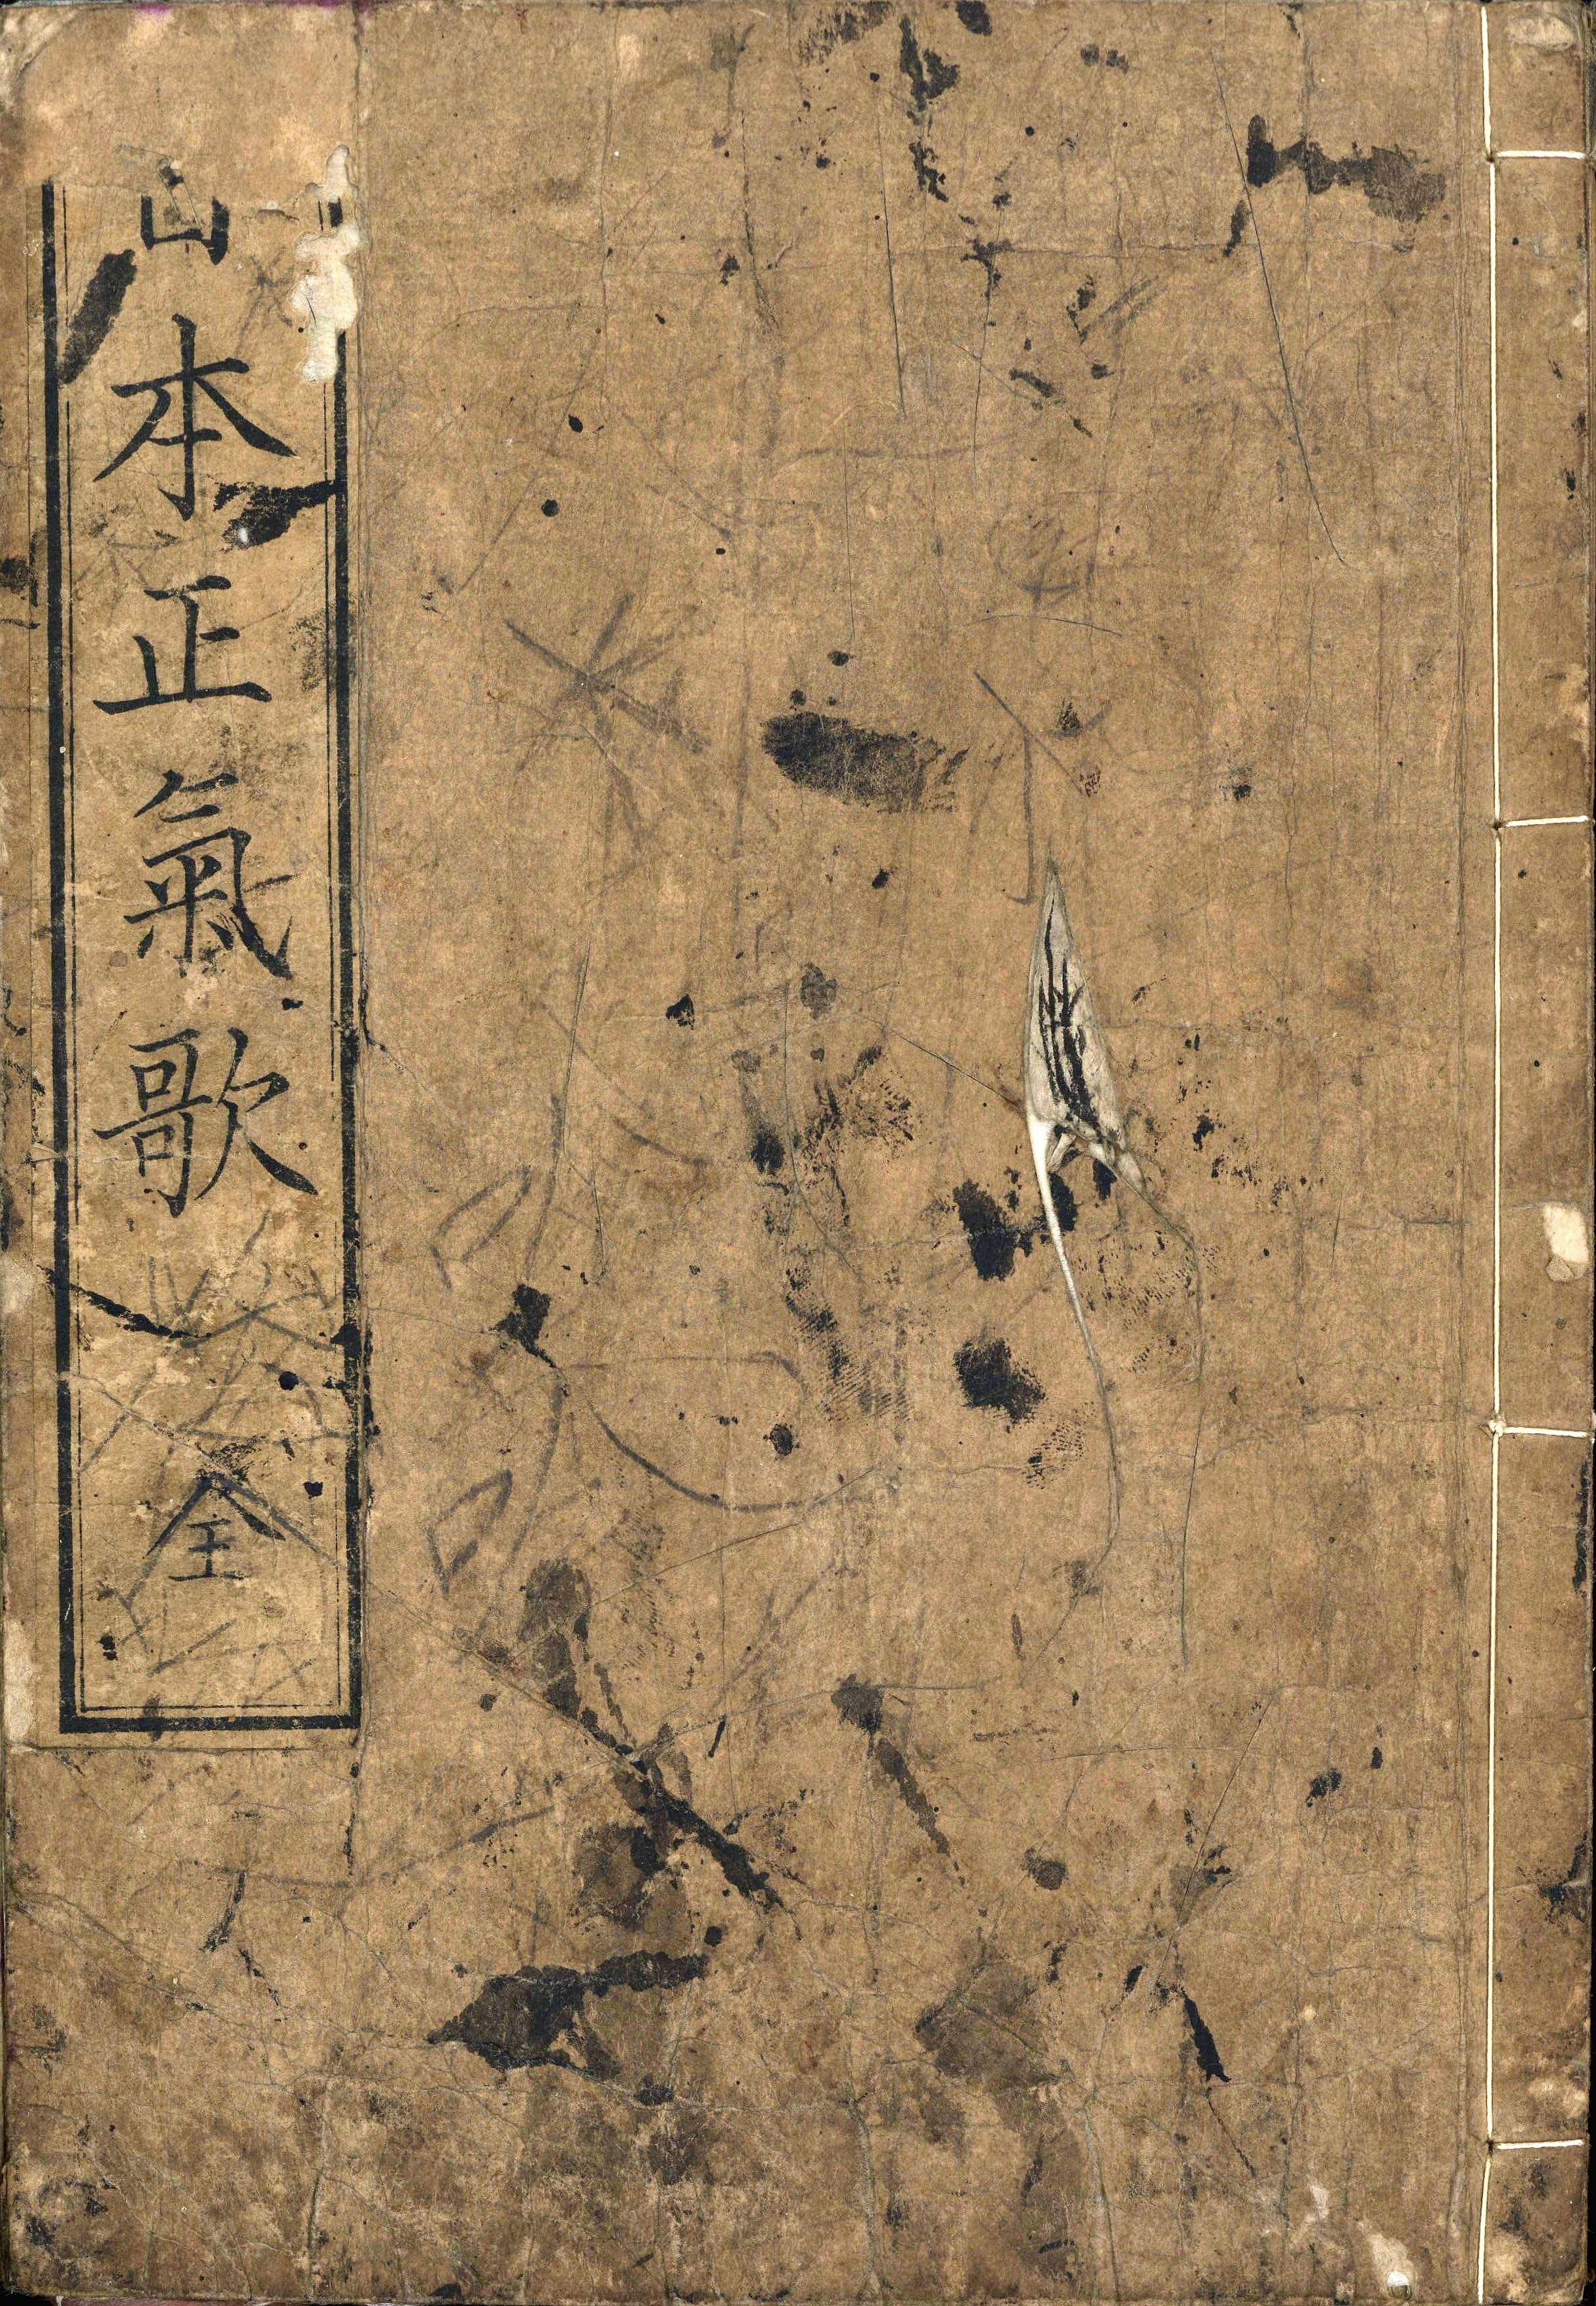 山本正氣歌 全